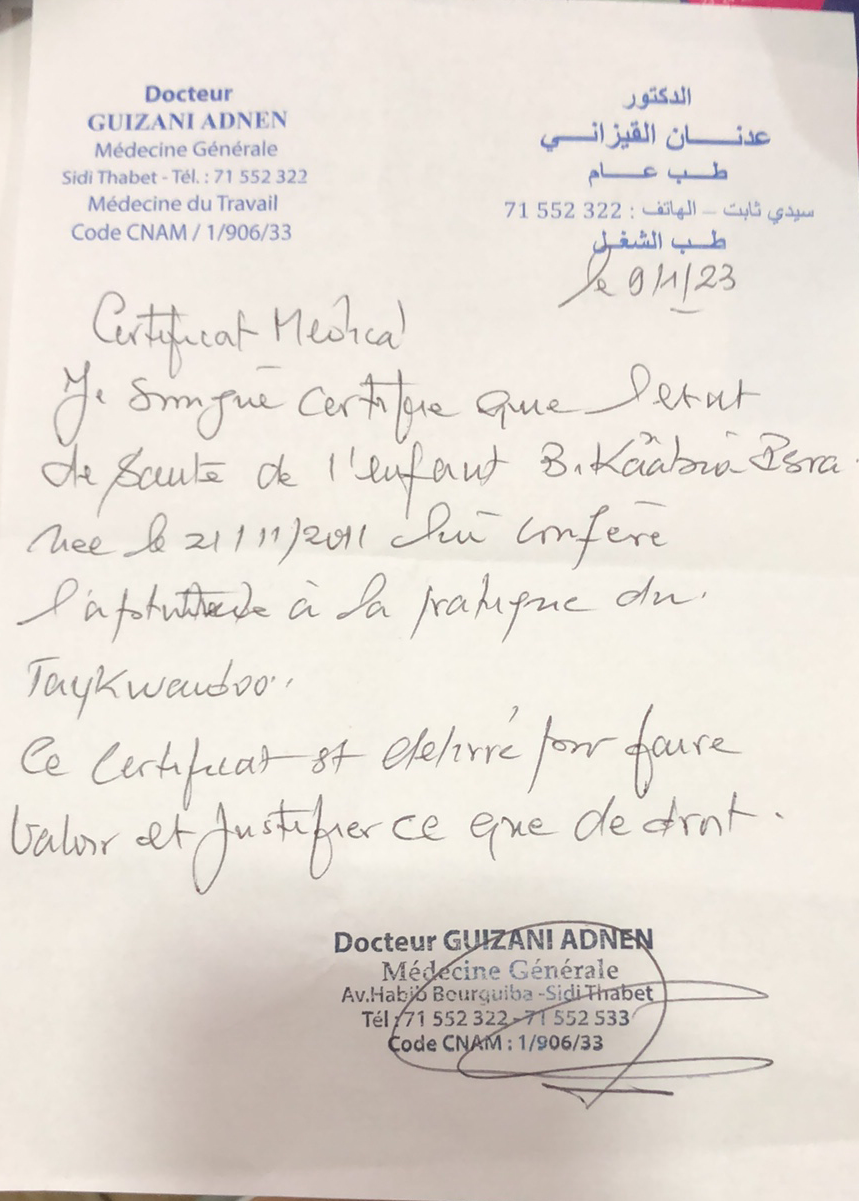 Docteur
GUIZANI ADNEN
Médecine Générale
Sidi Thabet - Tél. : 71 552 322
Médecine du Travail
Code CNAM / 1/906/33
الدكتور
عدنـــان القيزانـــي
طـــب عـــام
سيدي ثابت – الهاتف : 322 552 71
طـــب الشغـل
le 9/1/23
Certificat Medical
Je certifie que l'etat
de sante de l'enfant B. Kâabia Isra
nee le 21/11/2011 lui confère
l'aptitude à la pratique du
Taykwandoo.
Ce certificat est delivré pour faire
valoir et justifier ce que de droit.
Docteur GUIZANI ADNEN
Médecine Générale
Av.Habib Bourguiba -Sidi Thabet
Tél : 71 552 322 - 71 552 533
Code CNAM : 1/906/33